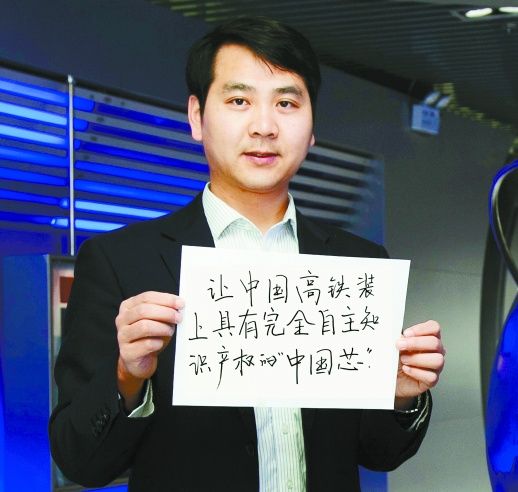 让中国高铁装
上具有完全自主知
识产权的"中国芯".